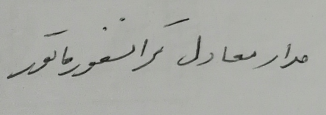 مدار معادل ترانسفورماتور